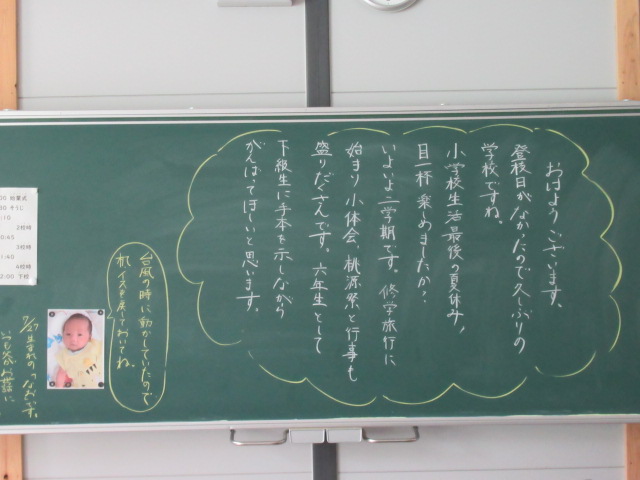 おはようございます。
登校日がなかったので久しぶりの
学校ですね。
小学校生活最後の夏休み、
目一杯楽しめましたか？
いよいよ二学期です。修学旅行に
始まり、小体会、桃源祭と行事も
盛りだくさんです。六年生として
下級生に手本を示しながら
がんばってほしいと思います。
台風の時に動かしていたので
机、イスを戻しておいてね。
7/27生まれの
です。
始業式
そうじ
2校時
3校時
4校時
2:00 下校